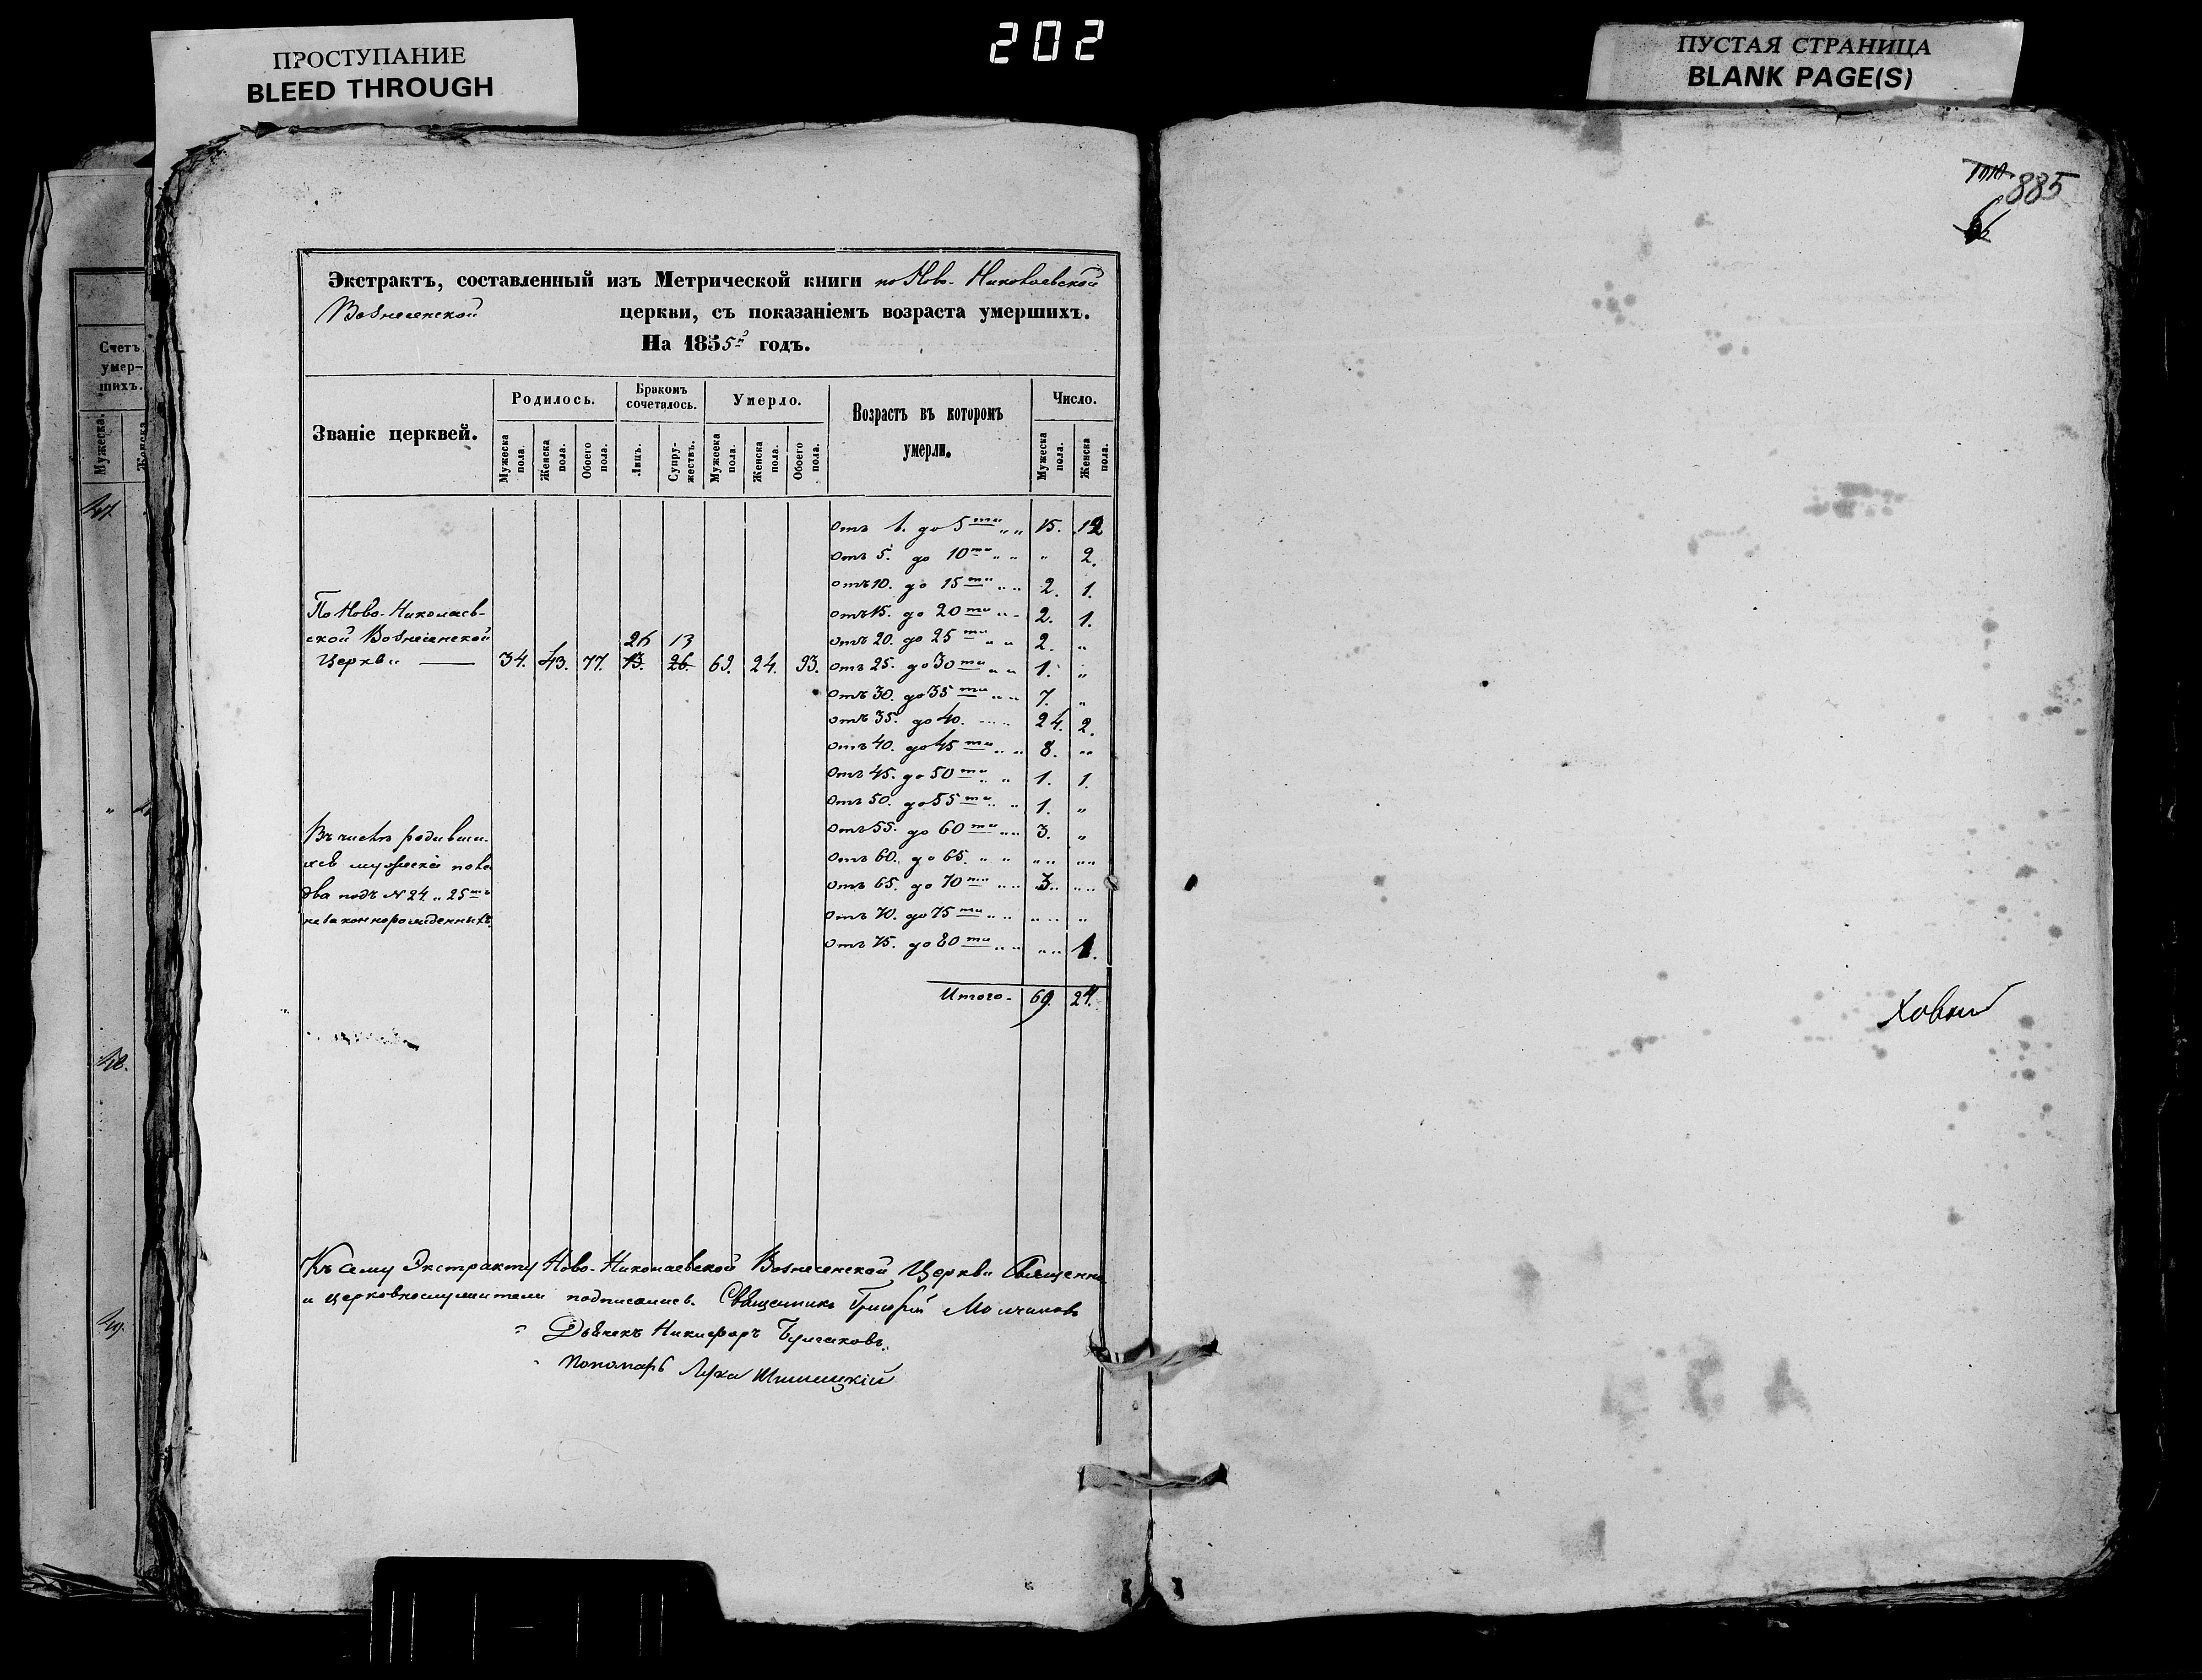 202
ПРОСТУПАНИЕ
BLEED THROUGH
ПУСТАЯ СТРАНИЦА
BLANK PAGE(S)
885
Счетъ
умер-
шихъ.
Мужеска
Женска
47.
48.
49.
Экстрактъ, составленный изъ Метрической книги по Ново-Николаевской
Вознесенской церкви, съ показаніемъ возраста умершихъ.
На 1855й годъ.
Званіе церквей. Родилось. Бракомъ сочеталось. Умерло. Возрастъ въ которомъ умерли. Число.
Мужеска пола. Женска пола. Обоего пола. Лицъ. Супружествъ. Мужеска пола. Женска пола. Обоего пола. Мужеска пола. Женска пола.
Отъ 1. до 5ти „ „ 15. 12
Отъ 5. до 10ти „ „ „ 2.
Отъ 10. до 15ти „ „ 2. 1.
По Ново-Николаев-
Отъ 15. до 20ти „ „ 2. 1.
ской Вознесенской 26 13
Отъ 20. до 25ти „ „ 2. „
Церкви — 34. 43. 77. 13. 26. 69. 24. 93. Отъ 25. до 30ти „ „ 1. „
Отъ 30. до 35ти „ „ 7. „
Отъ 35. до 40. „ „ 24. 2.
Отъ 40. до 45ти „ „ 8. „
Отъ 45. до 50ти „ „ 1. 1.
Отъ 50. до 55ти „ „ 1. „
Отъ 55. до 60ти „ „ 3. „
Отъ 60. до 65. „ „ „ „ „ „
Отъ 65. до 70ти „ „ 3. „ „
Отъ 70. до 75ти „ „ „ „ „
Отъ 75. до 80ти „ „ „ „ 1.
Въ числѣ родивши-
хся мужеска пола
два подъ № 24 „ 25ти
незаконнорожденныхъ.
Итого - 69. 24.
Къ сему Экстракту Ново-Николаевской Вознесенской Церкви Священно
и церковнослужители подписались. Священникъ Григорій
Дьячекъ Никифоръ Булгаковъ.
Пономарь Лука